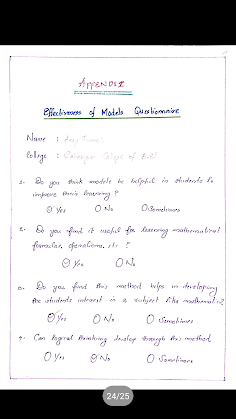 APPENDIX
Effectiveness of Models Questionnaire
Name :
College : College of
Do you think models is helpful in students to
improve their learning ?
Yes No Sometimes
Do you find it useful for learning mathematical
formulas, operations, etc ?
Yes No
Do you find this method helps in developing
the students interest in a subject like mathematics
Yes No Sometimes
Can logical thinking develop through this method
Yes No Sometimes
24/25